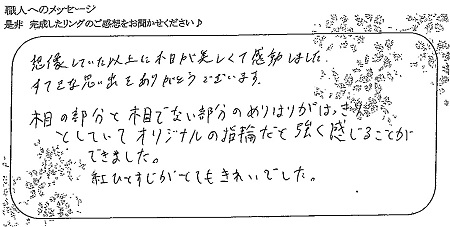 職人へのメッセージ
是非 完成したリングのご感想をお聞かせください♪
想像していた以上に木目が美しくて感動しました。
すてきな思い出をありがとうございます。
木目の部分と木目でない部分のめりはりがはっきり
としていてオリジナルの指輪だと強く感じることが
できました。
紅ひとすじがとてもきれいでした。